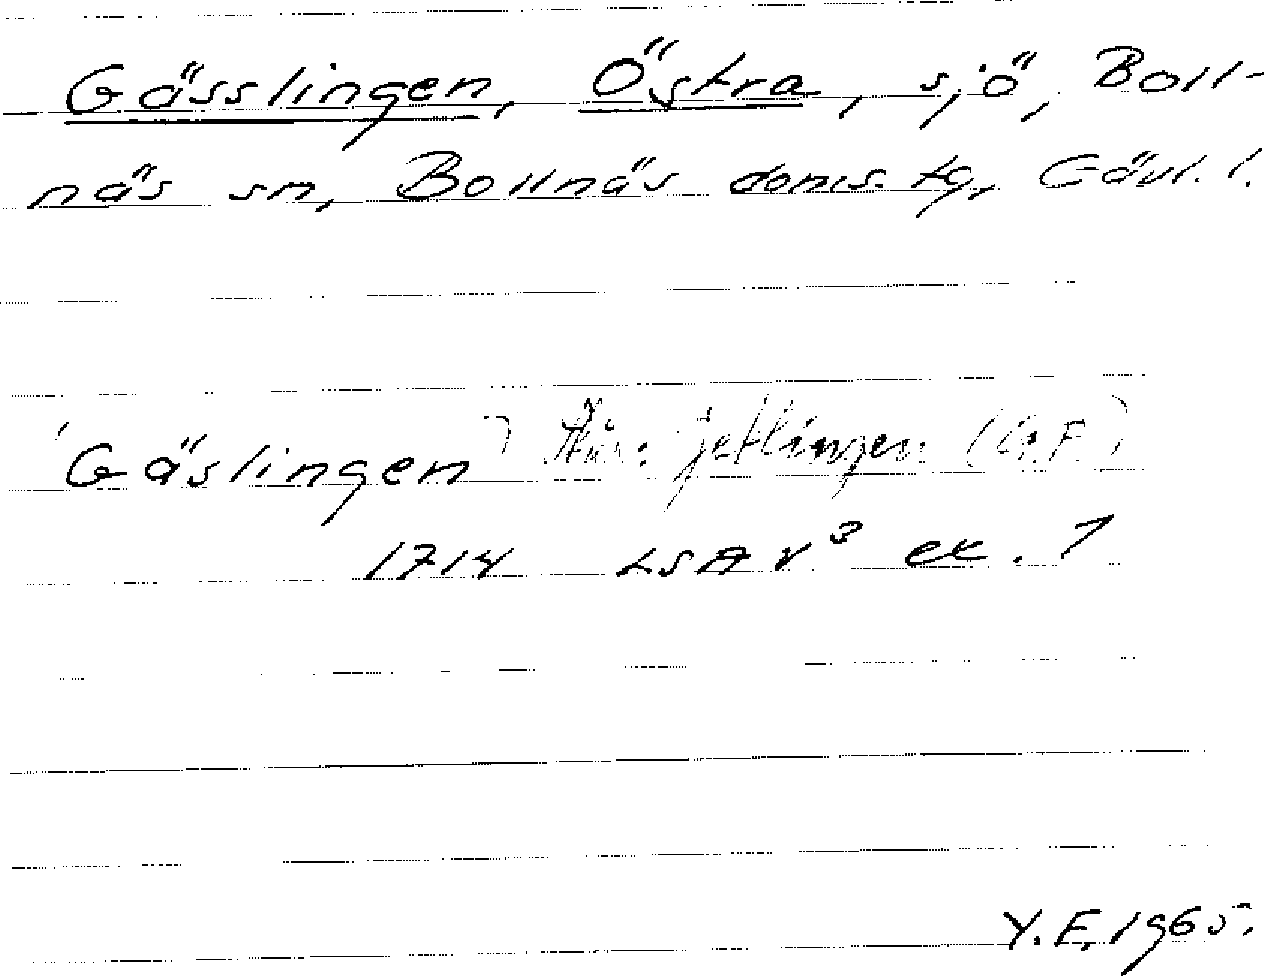 Gässlingen, Östra, sjö, Boll-
näs sn, Bollnäs doms. tg, Gävl. l.
Gäslingen jetlingen (G.F.)
1714 LSA v³ ex. 7
Y.E. 1965.